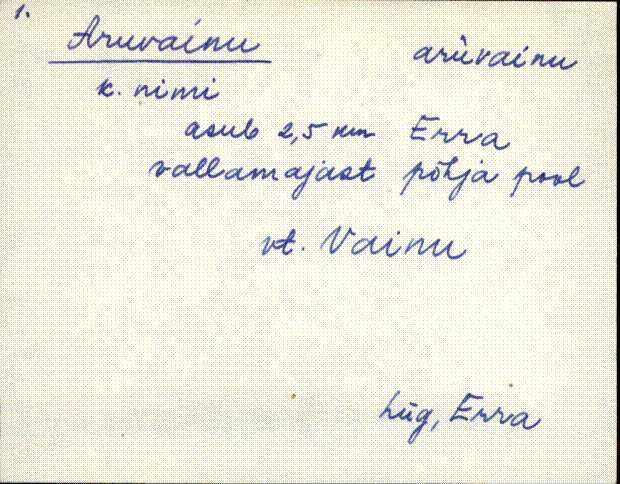 1.
Aruvainu arŭvainu
k. nimi
asub 2,5 km Erra
vallamajast põhja pool
vt. Vainu
Lüg, Erra